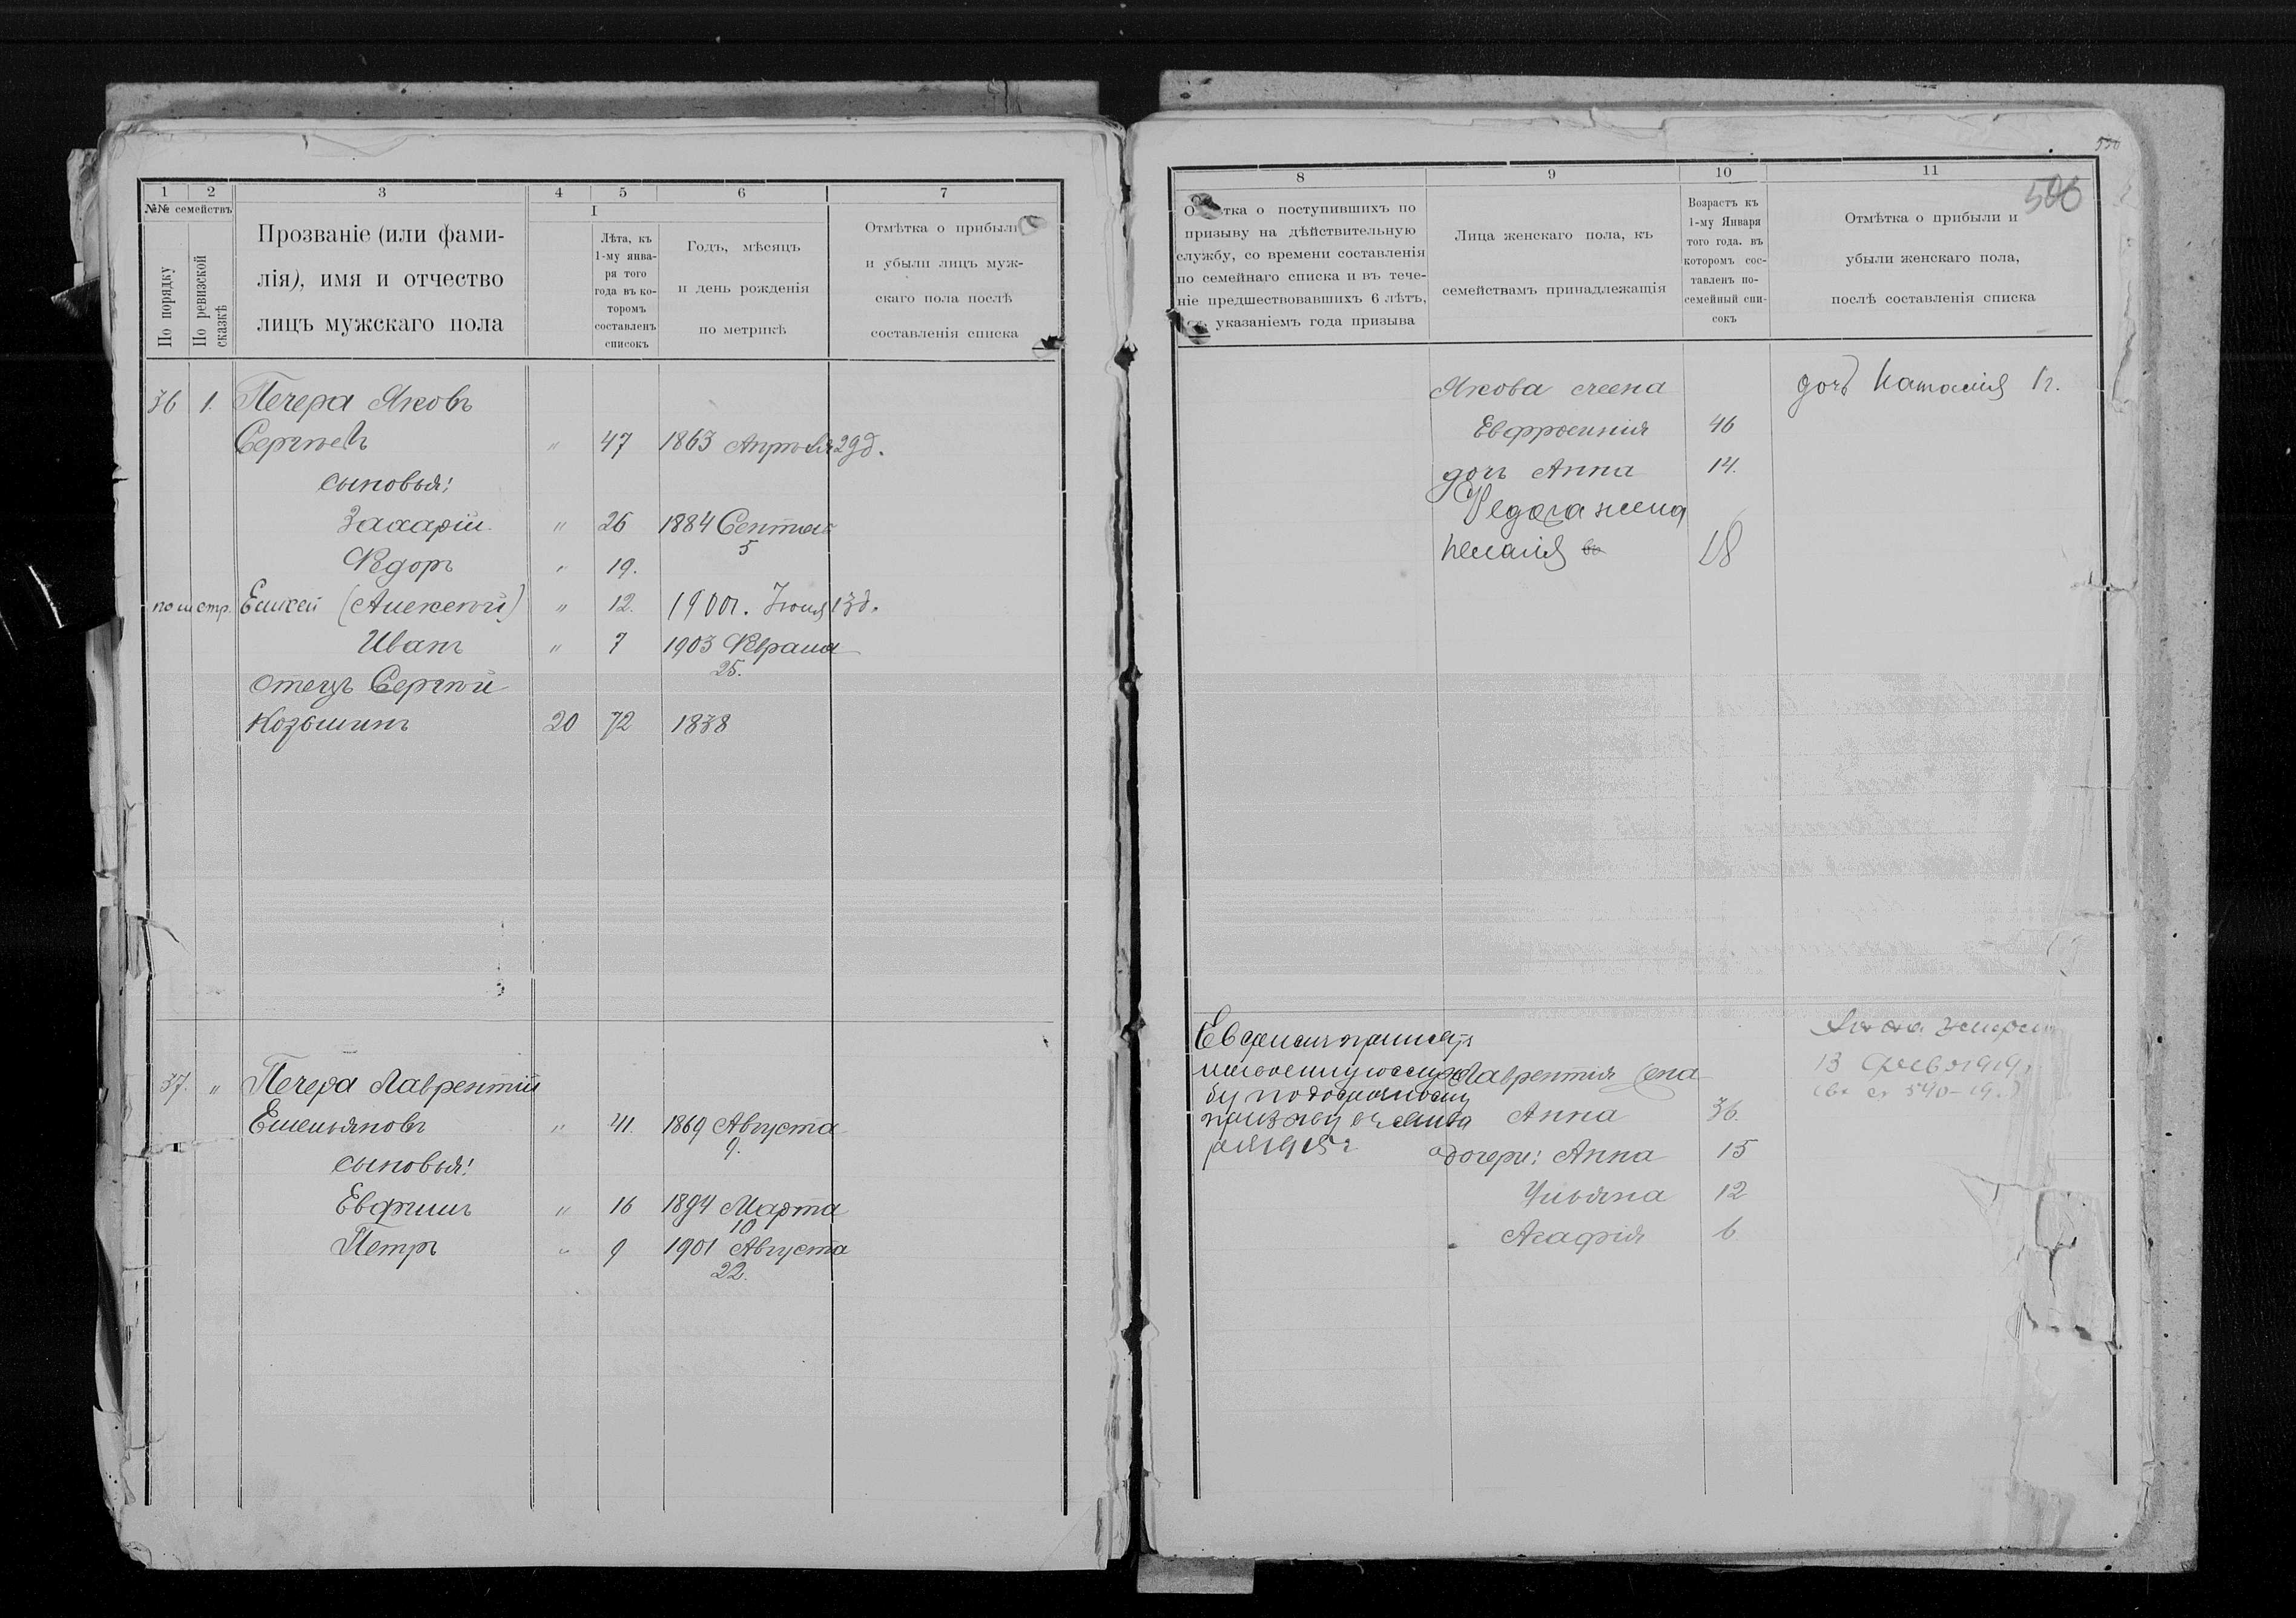 1 2 3 4 5 6 7
№№ семействъ
По порядку
По ревизской сказкѣ
Прозваніе (или фами-
лія), имя и отчество
лицъ мужскаго пола
I
Лѣта, къ
1-му янва-
ря того
года въ ко-
торомъ
составленъ
списокъ
Годъ, мѣсяцъ
и день рожденія
по метрикѣ
Отмѣтка о прибыли
и убыли лицъ муж-
скаго пола послѣ
составленія списка
36 1. Печера Яковъ
Сергѣевъ " 47 1863 Апрѣля 29д.
сыновья:
Захарій " 26 1884 Сентяб
5
Ѳедоръ " 19.
по метр. Елисей (Алексѣй) " 12. 1900г. Іюня 13д.
Иванъ " 7 1903 Февраля
25.
отецъ Сергѣй
Козьминъ 20 72 1838
37. " Печера Лаврентій
Емельяновъ " 41. 1869 Августа
9.
сыновья:
Евфимъ " 16 1894 Марта
10
Петръ " 9 1901 Августа
22.
550
506
8 9 10 11
Отмѣтка о поступившихъ по
призыву на дѣйствительную
службу, со времени составленія
по семейнаго списка и въ тече-
ніе предшествовавшихъ 6 лѣтъ,
съ указаніемъ года призыва
Лица женскаго пола, къ
семействамъ принадлежащія
Возрастъ къ
1-му Января
того года. въ
которомъ сос-
тавленъ по-
семейный спи-
сокъ
Отмѣтка о прибыли и
убыли женскаго пола,
послѣ составленія списка
Якова жена дочь Наталія 1г.
Евфросинія 46
дочь Анна 14.
Ѳедора жена
Пелагія 18
Евфимъ принятъ
на военную служ
бу по досрочному
призыву въ
1915г
Лаврентія жена
Анна 36.
дочери: Анна 15
Ульяна 12
Агафія 6
13 1919